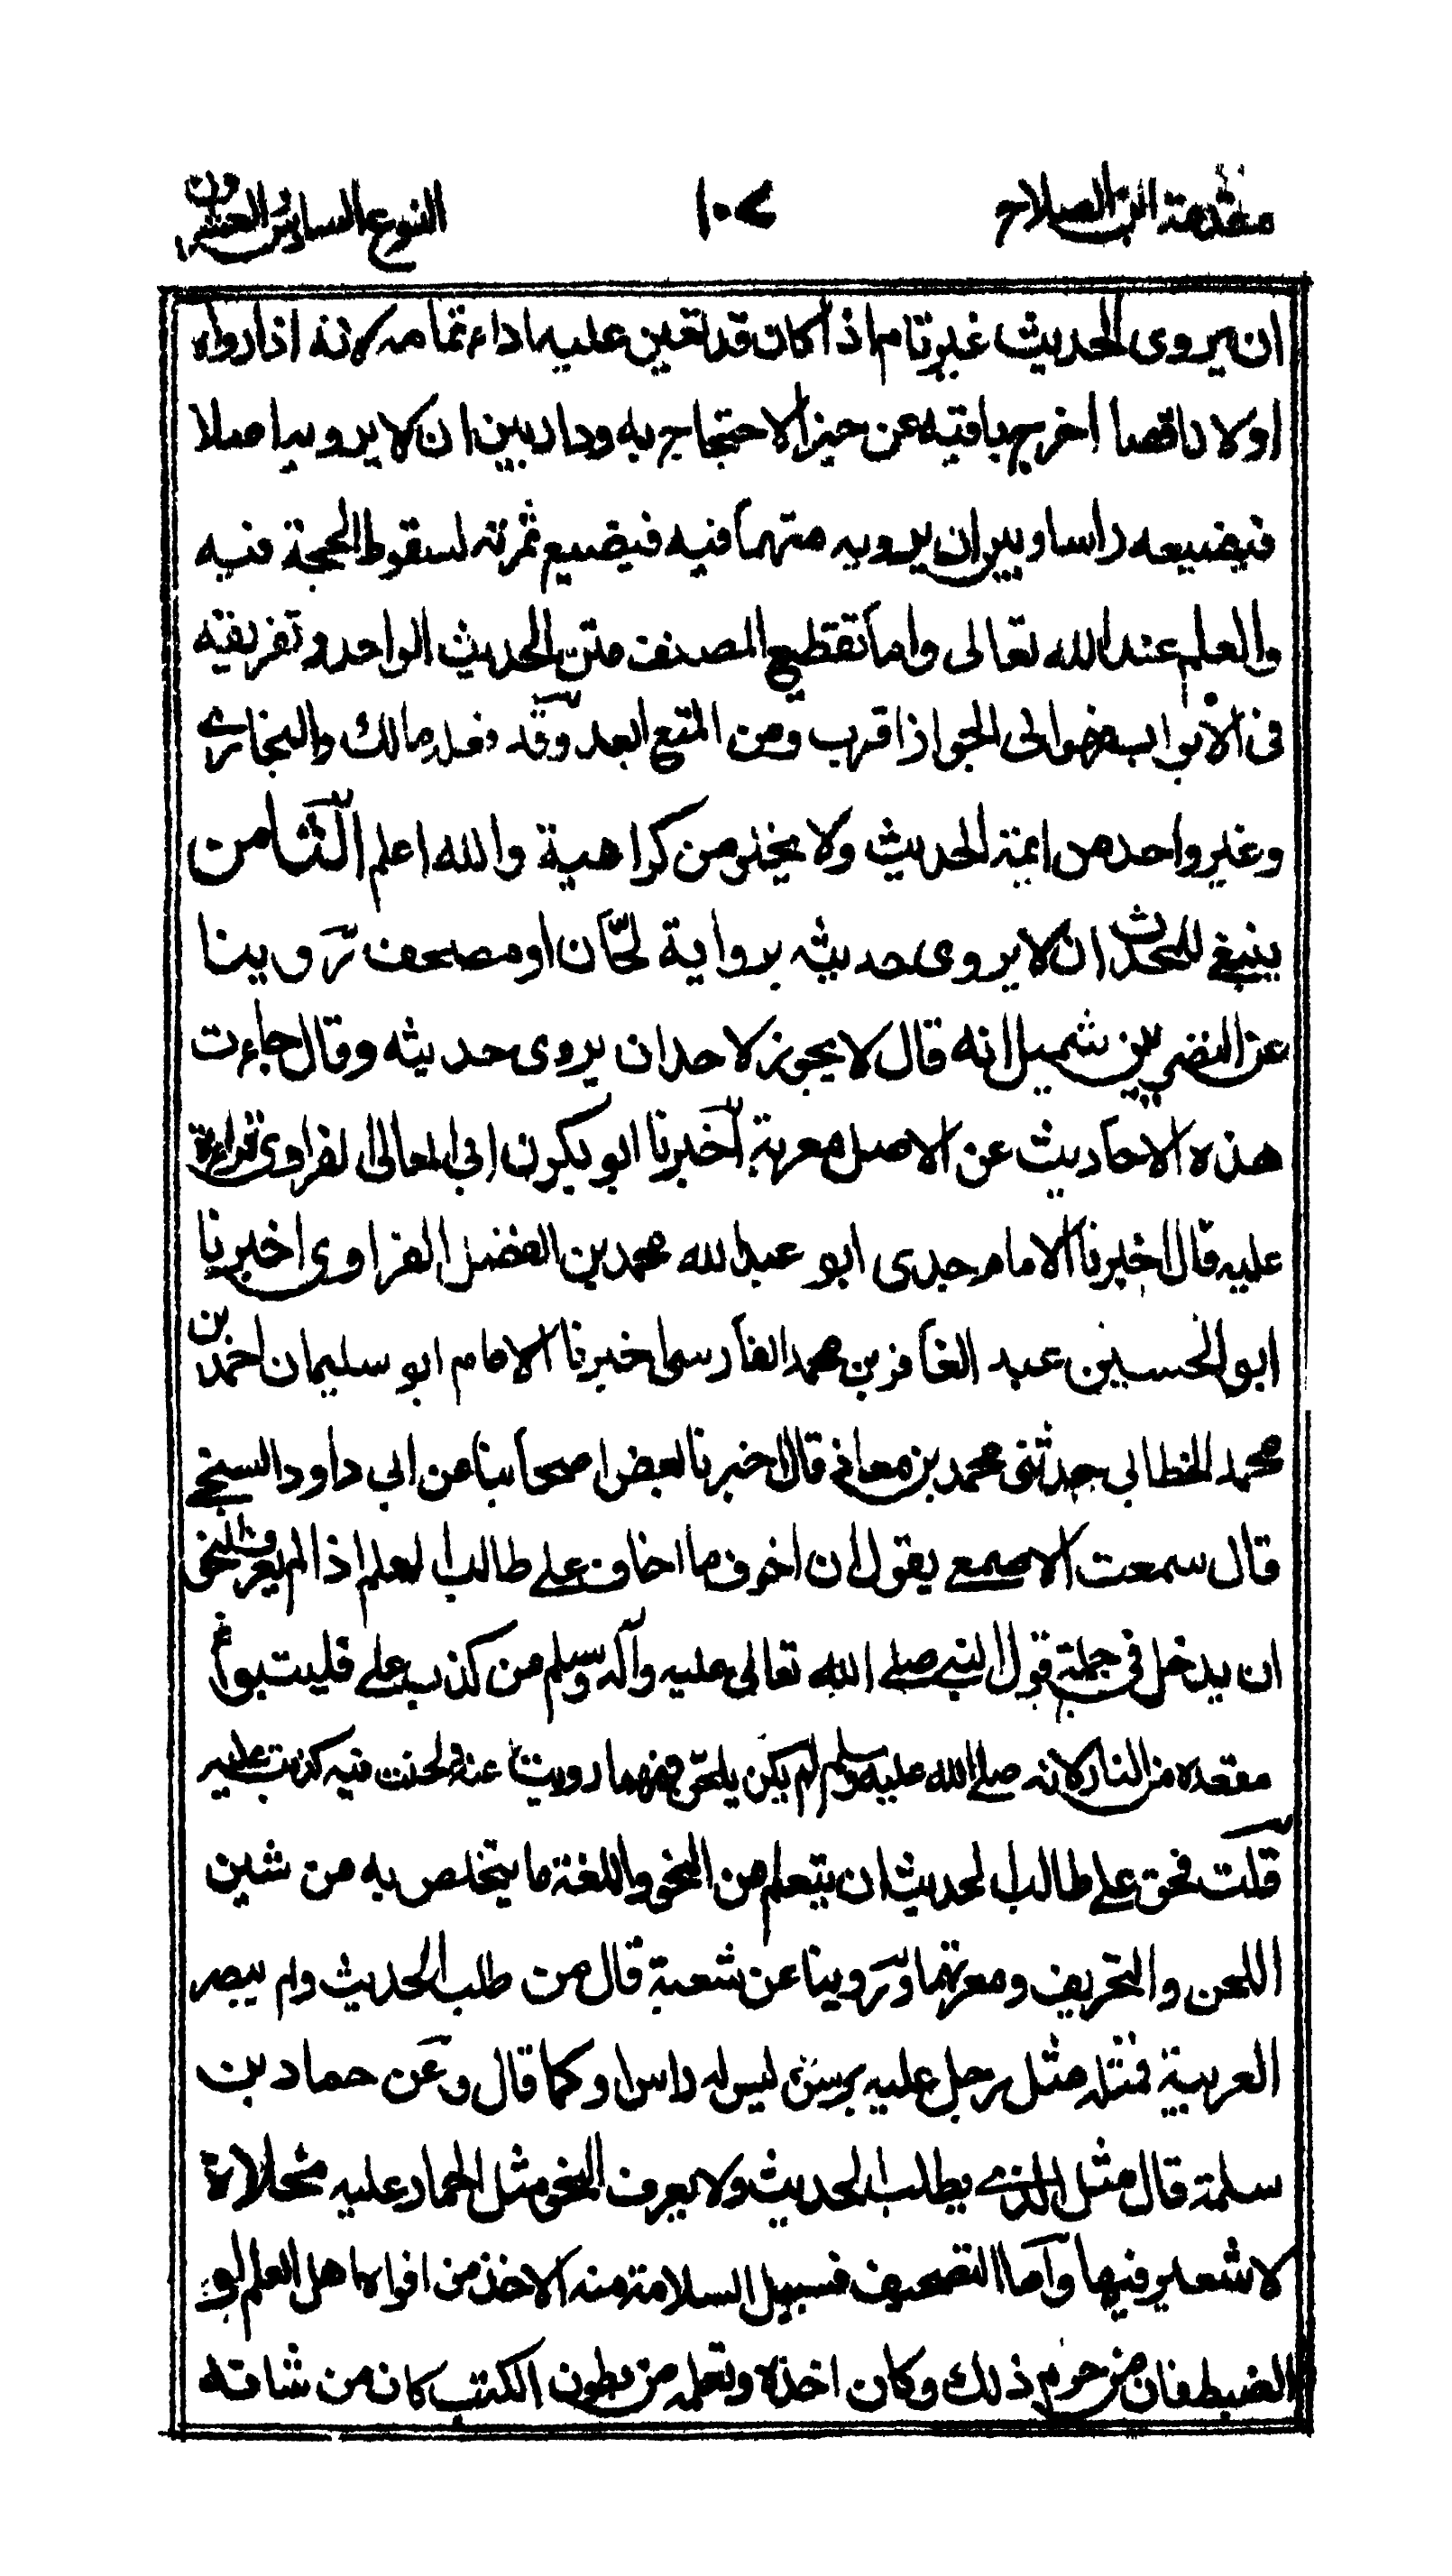 مقدمة ابن الصلاح ١٠٧ النوع السادس العشرون
ان يروى الحديث غير تام اذا كان قد تعين عليه اداء تمامه لانه اذا رواه
اولا ناقصا اخرج باقيه عن حيز الاحتجاج به ودار بين ان لا يرويه اصلا
فيضيعه راسا وبين ان يرويه متهما فيه فيضيع ثمرته لسقوط الحجة فيه
والعلم عند الله تعالى واما تقطيع المصنف متن الحديث الواحد وتفريقه
فى الابواب فهو الى الجواز اقرب ومن المنع ابعد وقد فعله مالك والبخارى
وغير واحد من ائمة الحديث ولا يخلو من كراهية والله اعلم الثامن
ينبغى للمحدث ان لا يروى حديثه برواية لحان او مصحف روينا
عن النضر بن شميل انه قال لا يجوز لاحد ان يروى حديثه وقال جاءت
هذه الاحاديث عن الاصل معربة اخبرنا ابو بكر بن ابى المعالى الفراوى قراءة
عليه قال اخبرنا الامام جدى ابو عبد الله محمد بن الفضل الفراوى اخبرنا
ابو الحسين عبد الغافر بن محمد الفارسى اخبرنا الامام ابو سليمان احمد بن
محمد الخطابى حدثنى محمد بن معاذ قال اخبرنا بعض اصحابنا عن ابى داود السنجى
قال سمعت الاصمعى يقول ان اخوف ما اخاف على طالب العلم اذا لم يعرف النحو
ان يدخل فى جملة قول النبى صلى الله تعالى عليه وآله وسلم من كذب على فليتبوأ
مقعده من النار لانه صلى الله عليه وسلم لم يكن يلحن فمهما رويت عنه ولحنت فيه كذبت عليه
قلت فحق على طالب الحديث ان يتعلم من النحو واللغة ما يتخلص به من شين
اللحن والتحريف ومعرتهما وروينا عن شعبة قال من طلب الحديث ولم يبصر
العربية فمثله مثل رجل عليه برنس ليس له راس او كما قال وعن حماد بن
سلمة قال مثل الذى يطلب الحديث ولا يعرف النحو مثل الحمار عليه مخلاة
لا شعير فيها واما التصحيف فسبيل السلامة منه الاخذ من افواه اهل العلم او
الضبط فان من حرم ذلك وكان اخذه وتعلمه من بطون الكتب كان من شانه